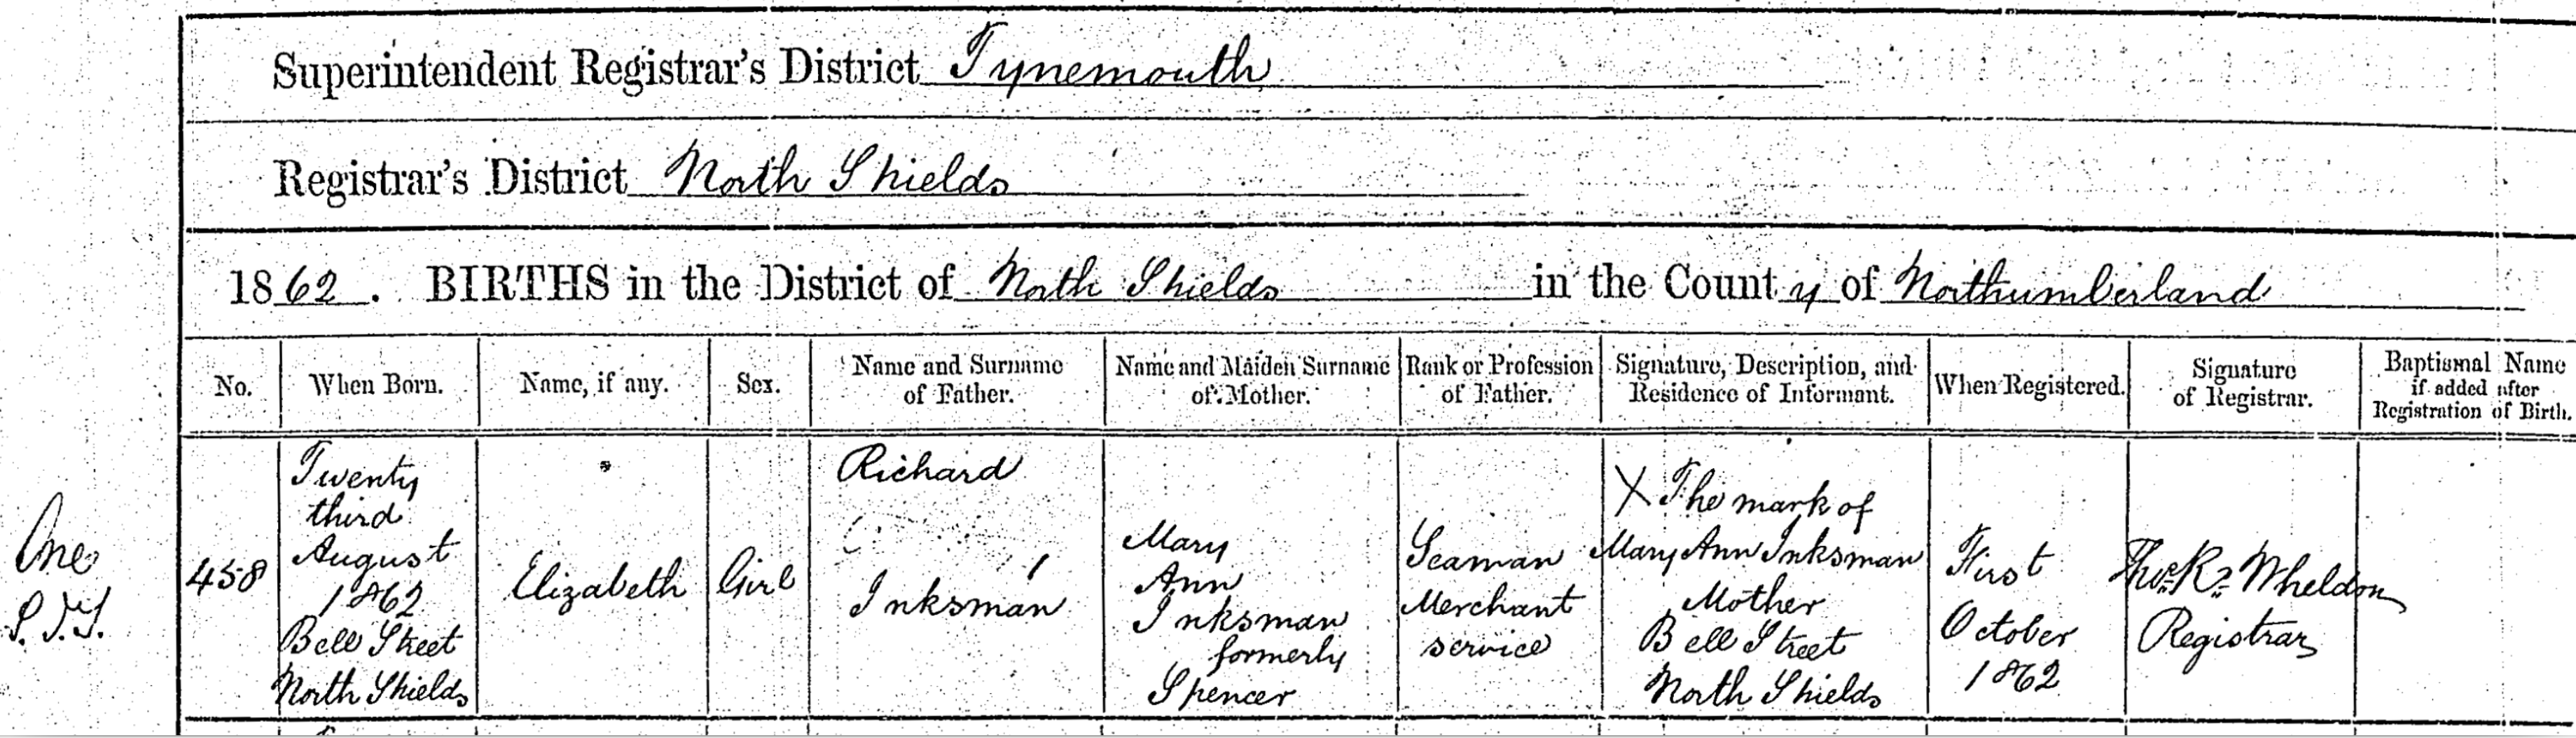 Superintendent Registrar's District Tynemouth
Registrar's District North Shields
1862. BIRTHS in the District of North Shields in the County of Northumberland
No.
When Born.
Name, if any.
Sex.
Name and Surname
of Father.
Name and Maiden Surname
of Mother.
Rank or Profession
of Father.
Signature, Description, and
Residence of Informant.
When Registered.
Signature
of Registrar.
Baptismal Name
if added after
Registration of Birth.
One
458
Twenty
third
August
1862
Bell Street
North Shields
Elizabeth
Girl
Richard
Inksman
Mary
Ann
Inksman
formerly
Spencer
Seaman
Merchant
service
X The mark of
Mary Ann Inksman
Mother
Bell Street
North Shields
First
October
1862
Wheldon
Registrar